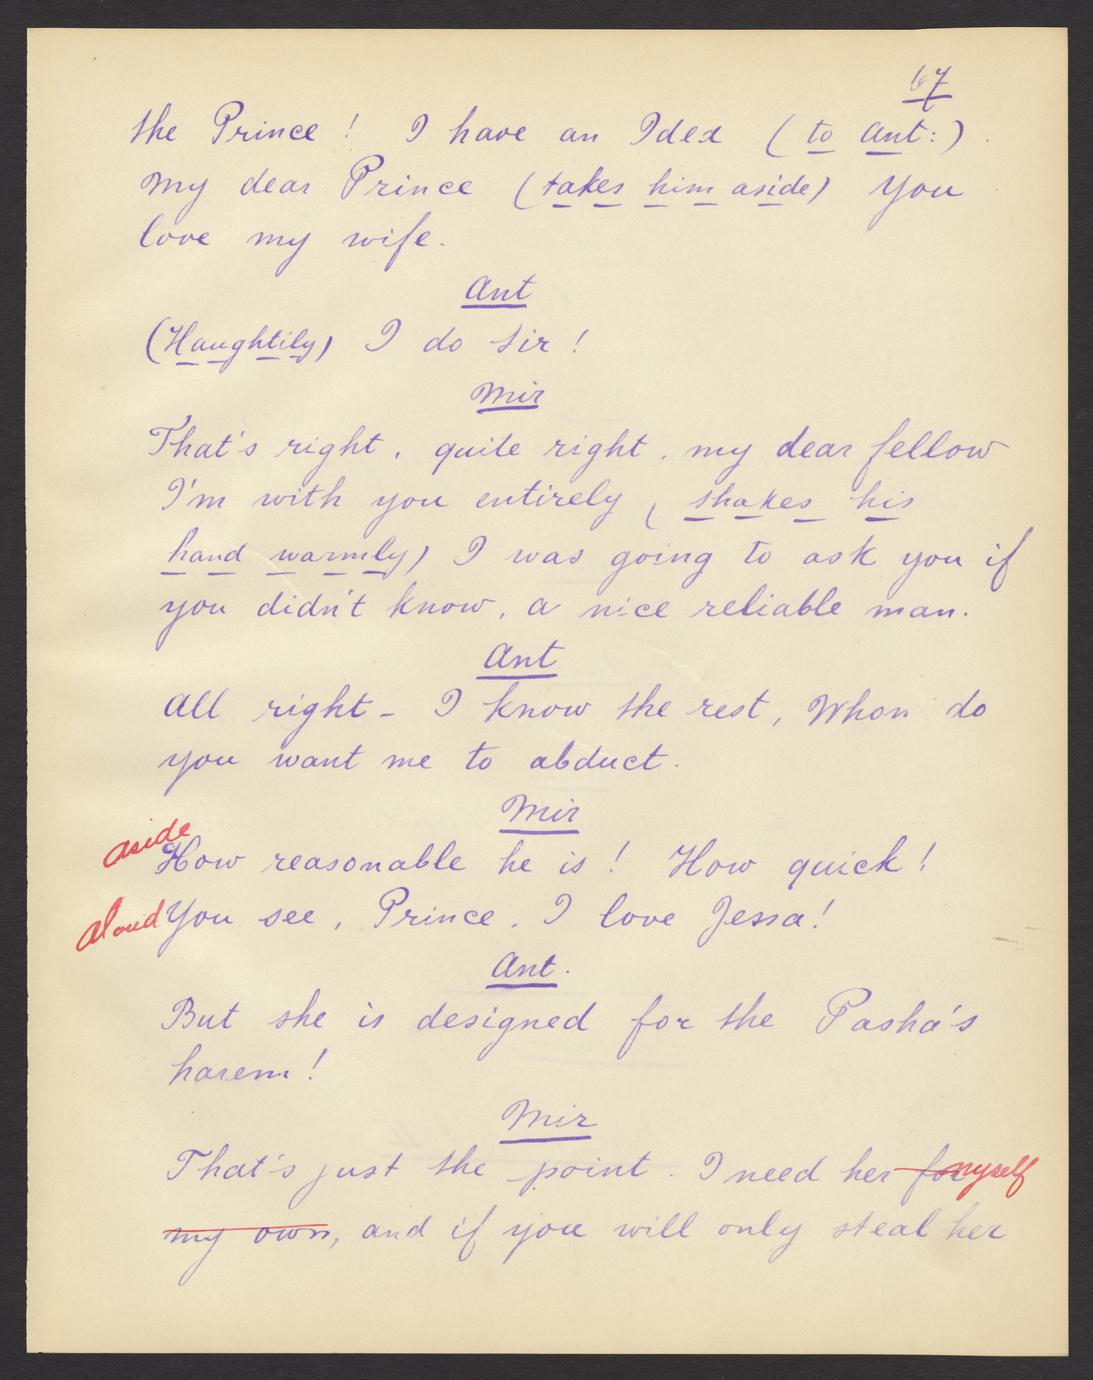 67
the Prince! I have an Idea (to Ant:)
My dear Prince (takes him aside) You
love my wife.
Ant
(Haughtily) I do Sir!
Mir
That's right, quite right, my dear fellow
I'm with you entirely (shakes his
hand warmly) I was going to ask you if
you didn't know, a nice reliable man.
Ant
All right - I know the rest, Whon do
you want me to abduct.
Mir
aside How reasonable he is! How quick!
aloud You see, Prince, I love Jessa!
Ant.
But she is designed for the Pasha's
harem!
Mir
That's just the point. I need her for myself
my own, and if you will only steal her